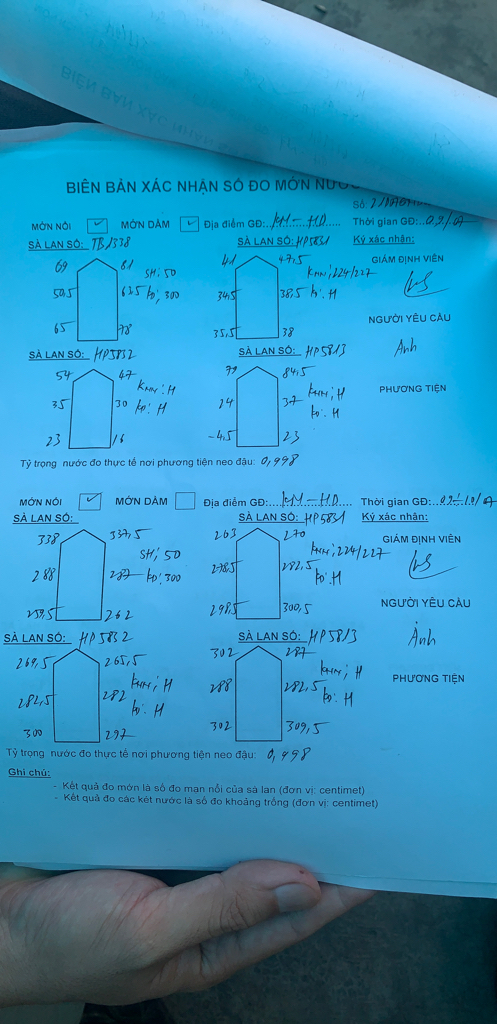 BIÊN BẢN XÁC NHẬN SỐ ĐO MỚN NƯỚC
Số:
MỚN NỔI ✓ MỚN DẦM ✓ Địa điểm GĐ: KM-HD Thời gian GĐ:
SÀ LAN SỐ: TB1338 SÀ LAN SỐ: HP5831 Ký xác nhận:
GIÁM ĐỊNH VIÊN
69 81 41 47,5
SH: 50 KMN: 224/227
50,5 62,5 kđ: 300 34,5 38,5 kđ: H
65 78 35,5 38
NGƯỜI YÊU CẦU
Ánh
SÀ LAN SỐ: HP5832 SÀ LAN SỐ: HP5813
54 47 79 84,5
KMN: H KMN: H
PHƯƠNG TIỆN
35 30 kđ: H 24 37 kđ: H
23 16 -4,5 23
Tỷ trọng nước đo thực tế nơi phương tiện neo đậu: 0,998
MỚN NỔI ✓ MỚN DẦM Địa điểm GĐ: KM-HD Thời gian GĐ:
SÀ LAN SỐ: SÀ LAN SỐ: HP5831 Ký xác nhận:
GIÁM ĐỊNH VIÊN
338 337,5 263 270
SH: 50 KMN: 224/227
288 287 kđ: 300 278,5 282,5 kđ: H
259,5 262 298,5 300,5
NGƯỜI YÊU CẦU
Ánh
SÀ LAN SỐ: HP5832 SÀ LAN SỐ: HP5813
269,5 265,5 302 287
KMN: H KMN: H
PHƯƠNG TIỆN
282,5 282 kđ: H 288 282,5 kđ: H
300 297 302 309,5
Tỷ trọng nước đo thực tế nơi phương tiện neo đậu: 0,998
Ghi chú:
- Kết quả đo mớn là số đo mạn nổi của sà lan (đơn vị: centimet)
- Kết quả đo các két nước là số đo khoảng trống (đơn vị: centimet)